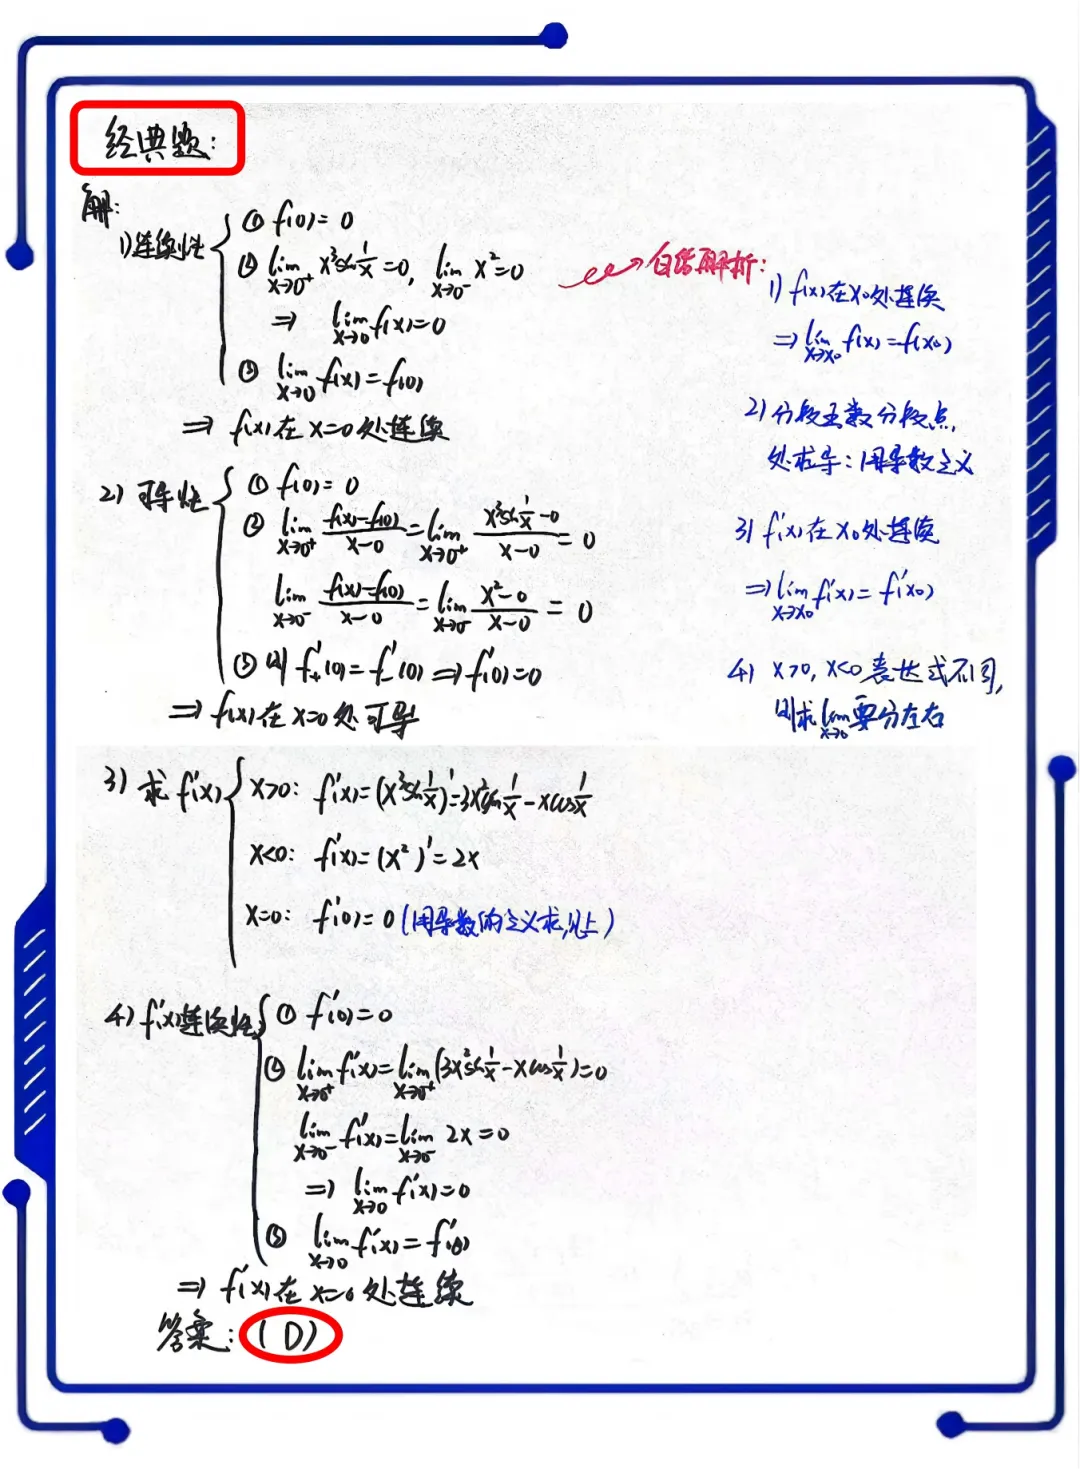 经典题:
解:
1) 连续性
① f(0)=0
② lim x→0⁺ x³sin 1/x =0, lim x→0⁻ x²=0
⇒ lim x→0 f(x)=0
③ lim x→0 f(x)=f(0)
⇒ f(x)在 x=0 处连续
2) 可导性
① f(0)=0
② lim x→0⁺ (f(x)-f(0))/(x-0) = lim x→0⁺ (x³sin 1/x -0)/(x-0) = 0
lim x→0⁻ (f(x)-f(0))/(x-0) = lim x→0⁻ (x²-0)/(x-0) = 0
③ 则 f'₊(0)=f'₋(0) ⇒ f'(0)=0
⇒ f(x)在 x=0 处可导
3) 求 f'(x)
x>0: f'(x)=(x³sin 1/x)'=3x²sin 1/x - xcos 1/x
x<0: f'(x)=(x²)'=2x
x=0: f'(0)=0 (用导数的定义求,见上)
4) f'(x)连续性
① f'(0)=0
② lim x→0⁺ f'(x)=lim x→0⁺ (3x²sin 1/x - xcos 1/x)=0
lim x→0⁻ f'(x)=lim x→0⁻ 2x=0
⇒ lim x→0 f'(x)=0
③ lim x→0 f'(x)=f'(0)
⇒ f'(x)在 x=0 处连续
答案: (D)
解析:
1) f(x)在x₀处连续
⇒ lim x→x₀ f(x)=f(x₀)
2) 分段函数分段点,
处求导: 用导数定义
3) f'(x)在x₀处连续
⇒ lim x→x₀ f'(x)=f'(x₀)
4) x>0, x<0 表达式不同,
则求 lim x→0 要分左右